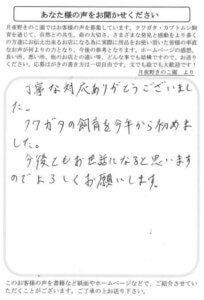 あなた様の声をお聞かせください
月夜野きのこ園ではお客様の声を募集しています。クワガタ・カブトムシ飼
育を通じて、自然との共生、命の大切さ、さまざまな発見と感動をより多く
月夜野きのこ園 より
丁寧な対応ありがとうございまし
た。
クワガタの飼育を今年から初めま
した。
今後ともお世話になると思います
のでよろしくお願いします。
このお客様の声を書籍など紙面やホームページなどで、ご紹介させてい
ただくことがございます。ご了承の上お送り下さい。